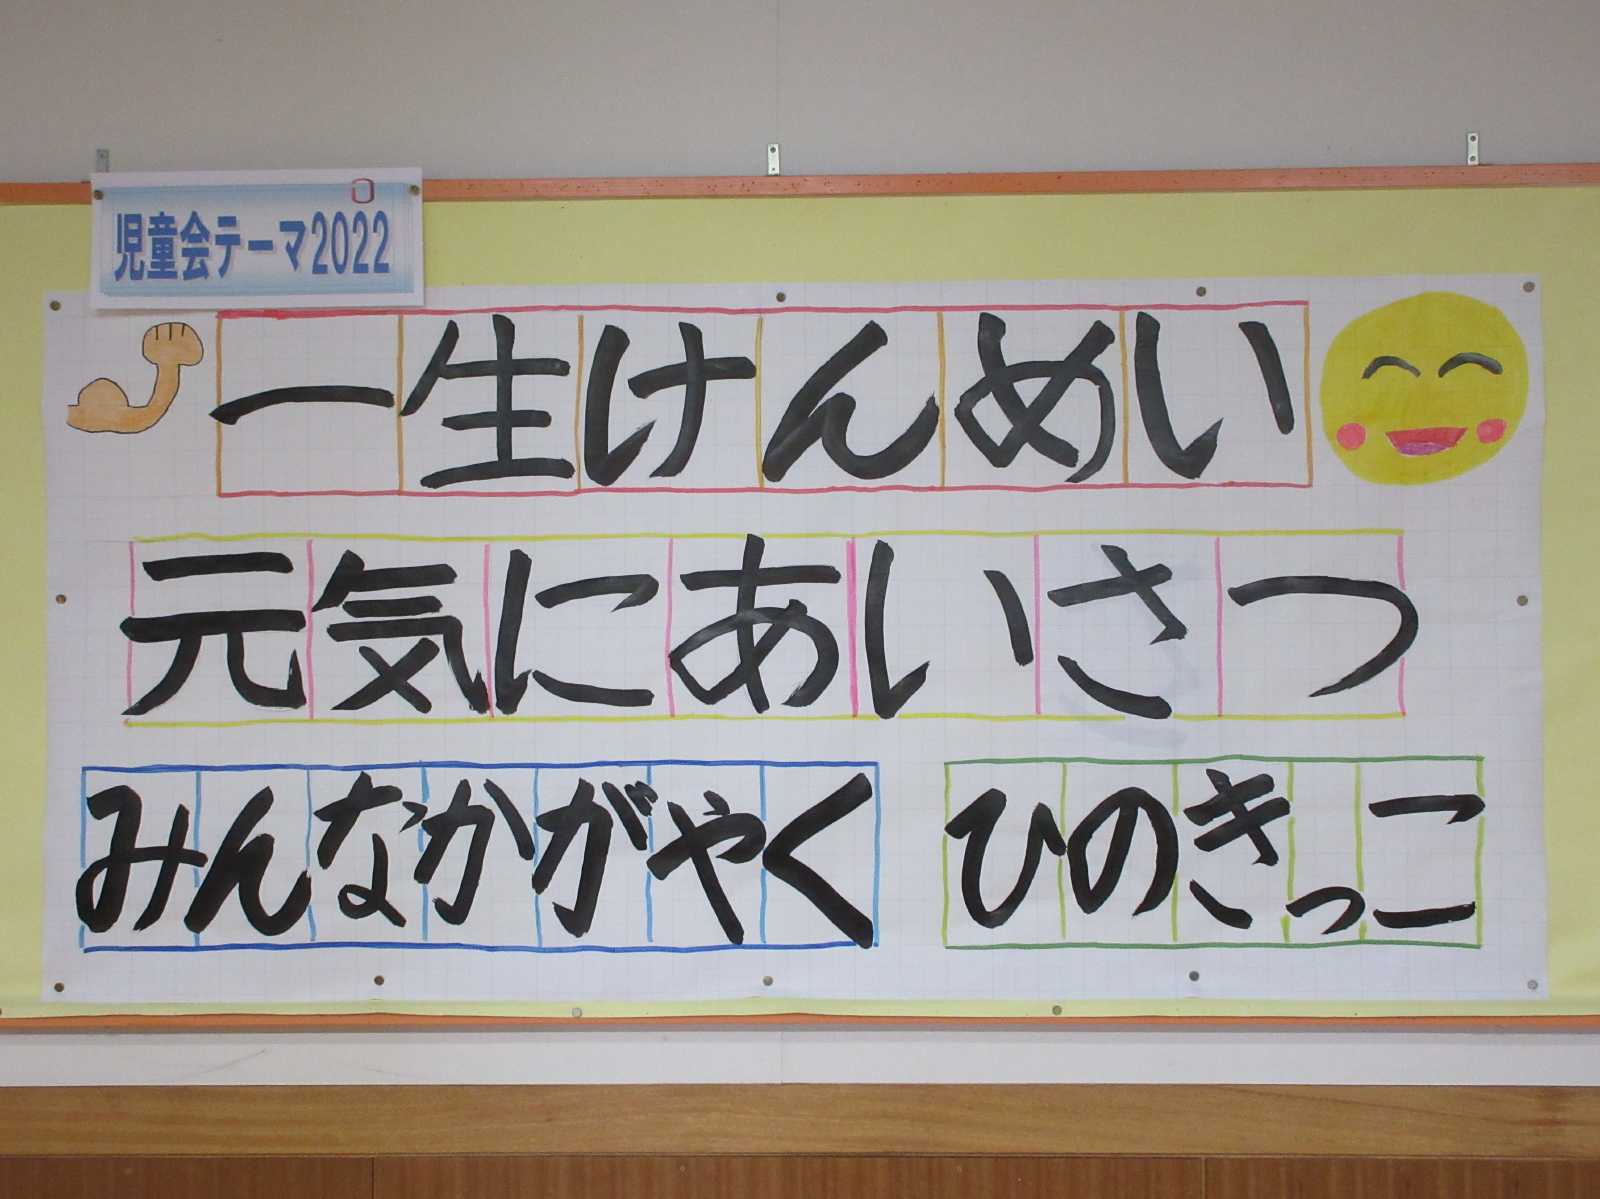 児童会テーマ2022
一生けんめい
元気にあいさつ
みんなかがやく ひのきっこ